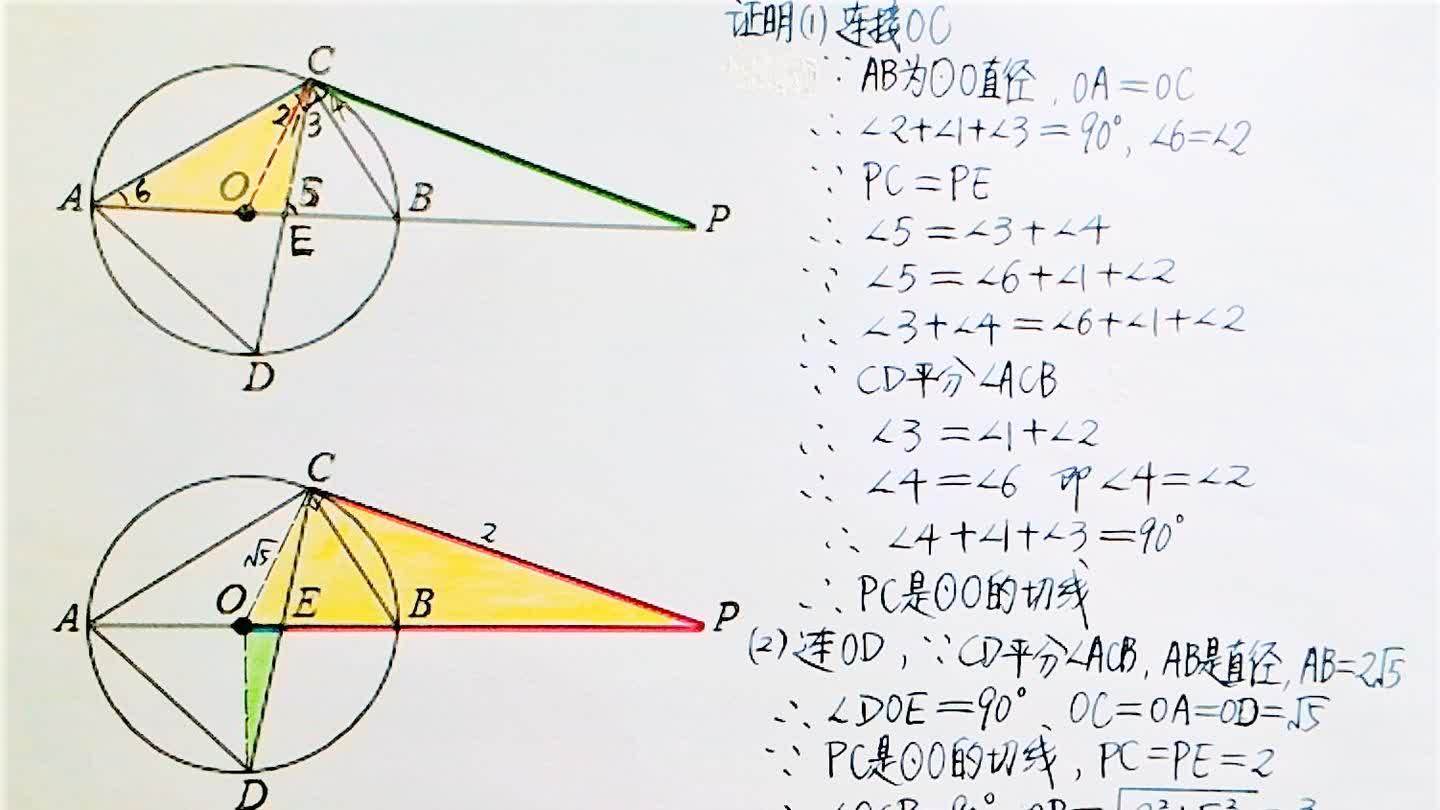 证明(1) 连接OC
∵ AB为⊙O直径, OA=OC
∴ ∠2+∠1+∠3=90°, ∠6=∠2
∵ PC=PE
∴ ∠5=∠3+∠4
∵ ∠5=∠6+∠1+∠2
∴ ∠3+∠4=∠6+∠1+∠2
∵ CD平分∠ACB
∴ ∠3=∠1+∠2
∴ ∠4=∠6 即∠4=∠2
∴ ∠4+∠1+∠3=90°
∴ PC是⊙O的切线
(2) 连OD, ∵CD平分∠ACB, AB是直径, AB=2√5
∴ ∠DOE=90°、OC=OA=OD=√5
∵ PC是⊙O的切线, PC=PE=2
C
2
3
4
A
6
O
5
B
E
P
D
C
√5
2
A
O
E
B
P
D